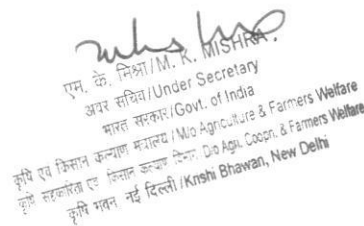 एम. के. मिश्रा/M. K. MISHRA.
अवर सचिव/Under Secretary
भारत सरकार/Govt. of India
कृषि एवं किसान कल्याण मंत्रालय/M/o Agriculture & Farmers Welfare
कृषि सहकारिता एवं किसान कल्याण विभाग/D/o Agri, Coopn. & Farmers Welfare
कृषि भवन, नई दिल्ली/Krishi Bhawan, New Delhi